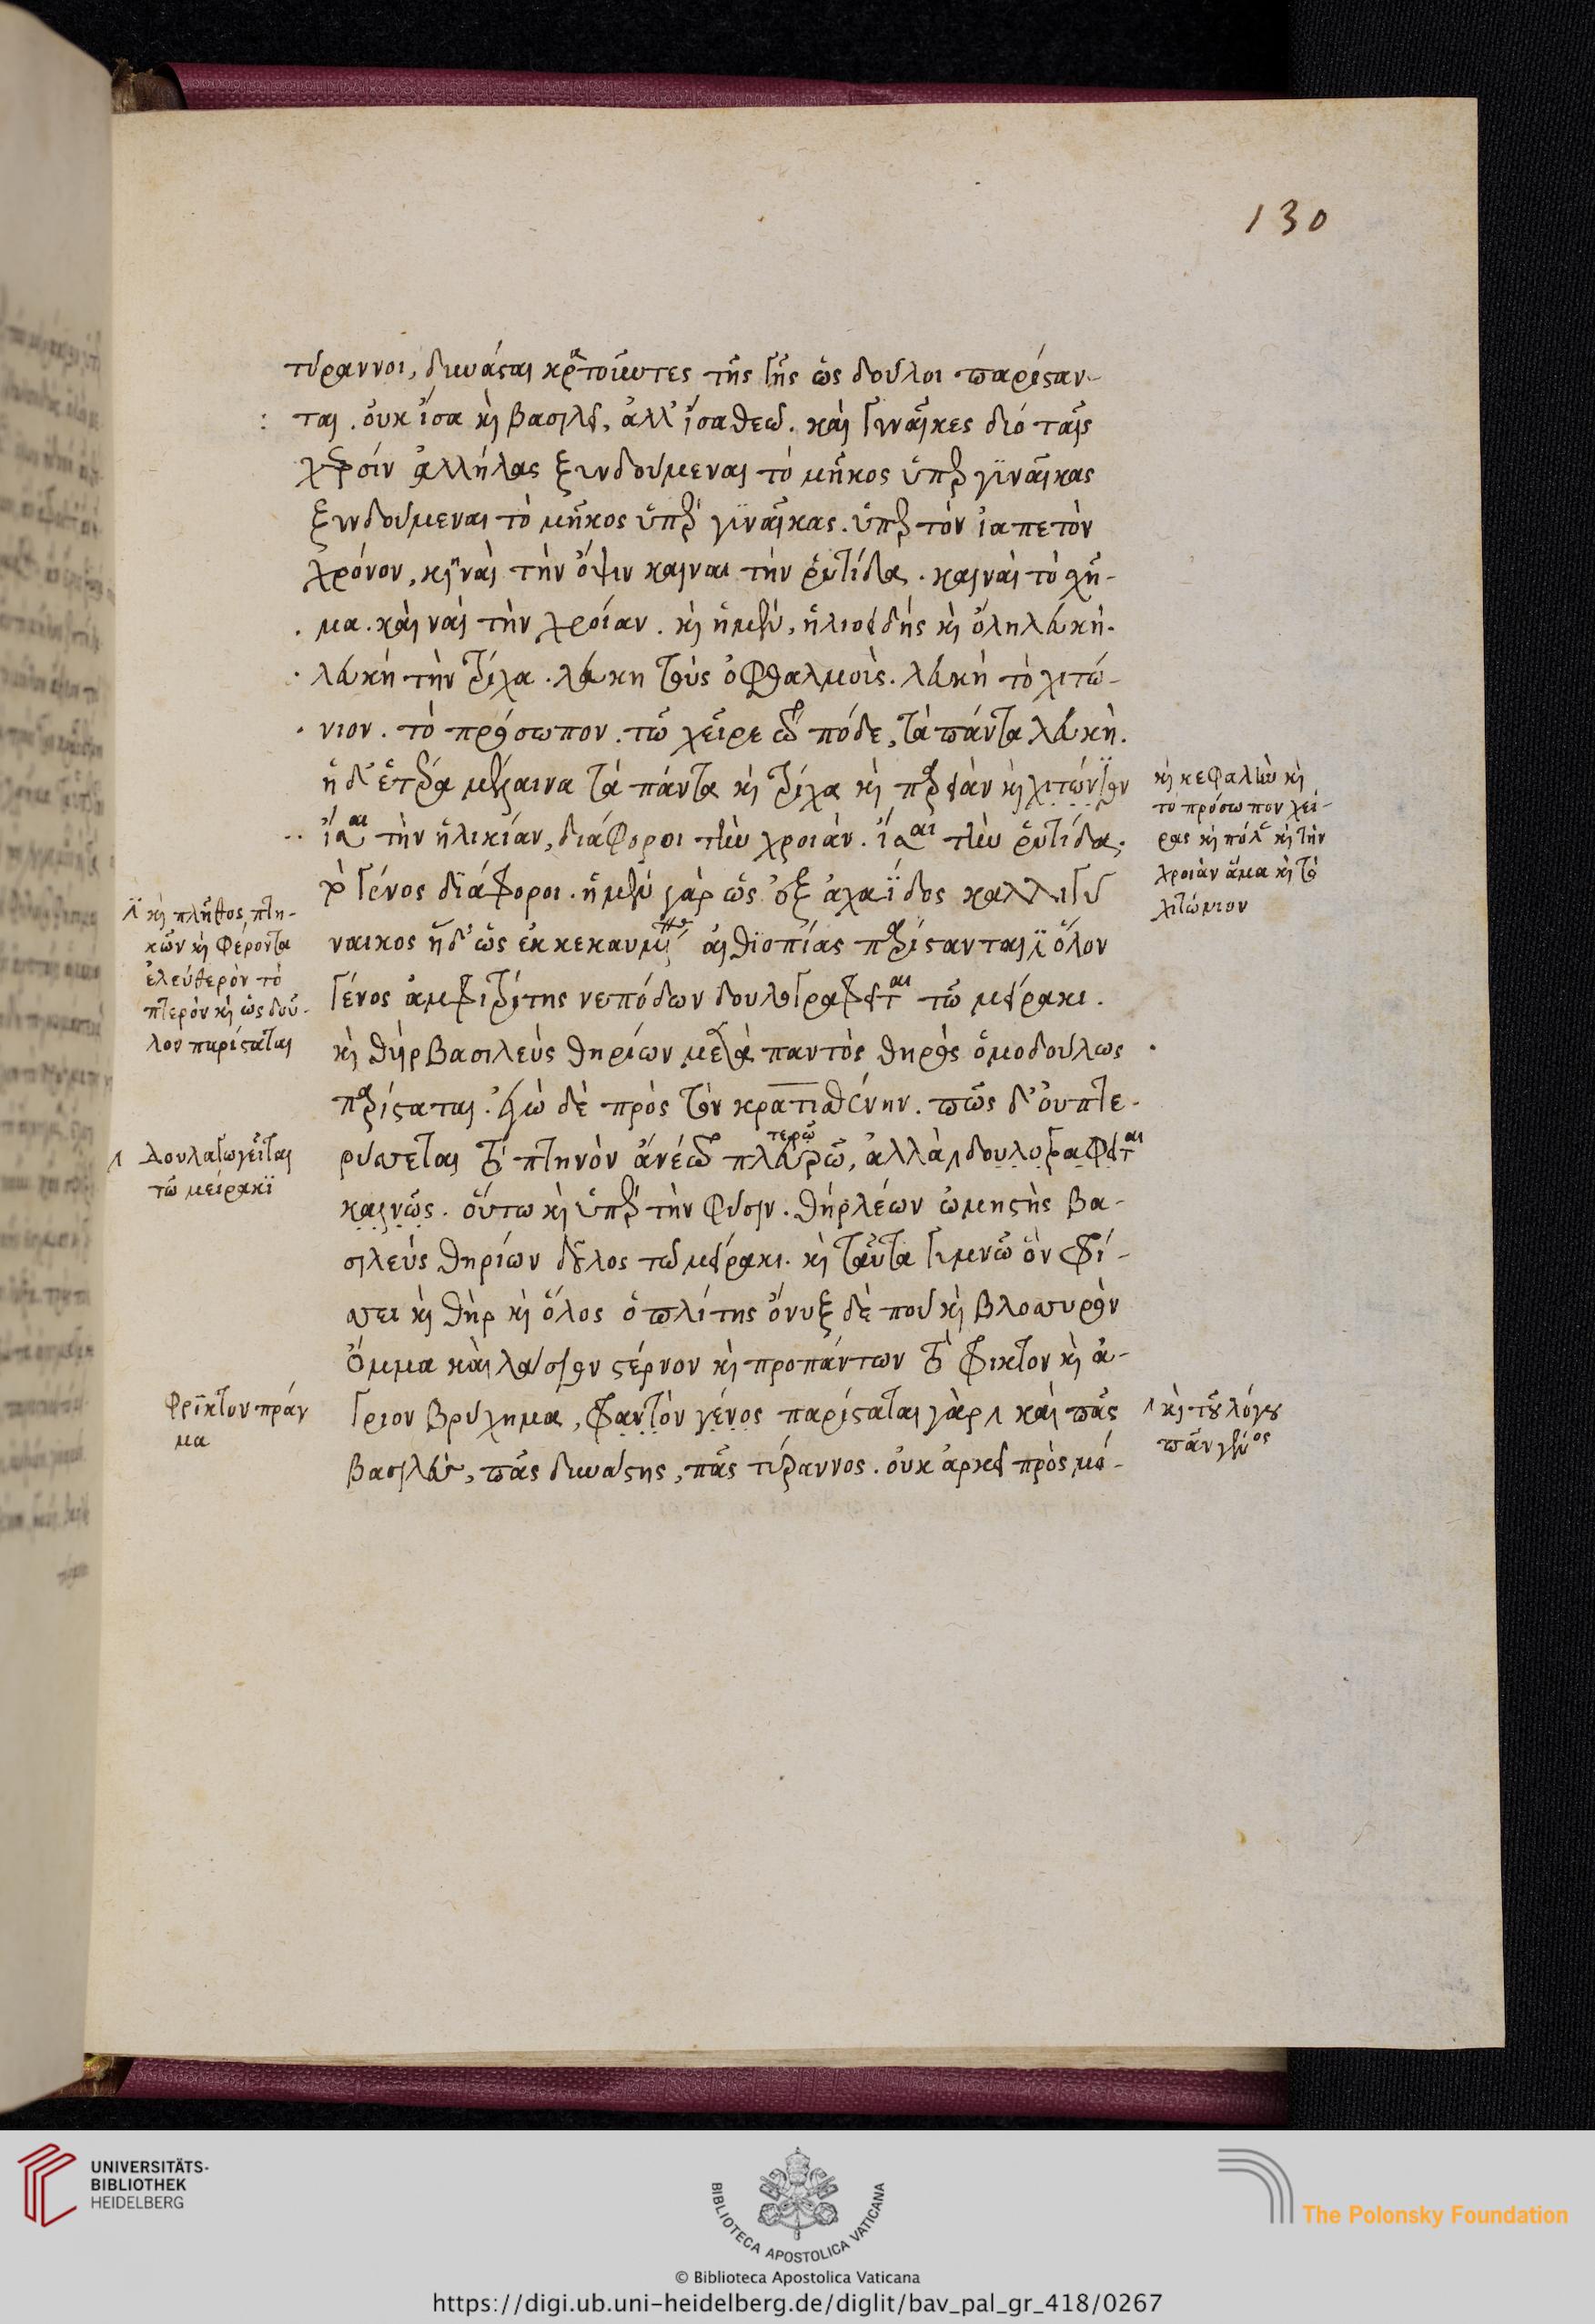 130
τύραννοι, δυνάσται κρατοῦντες τῆς γῆς ὡς δοῦλοι παρέσταν-
ται. οὐκ ἴσα καὶ βασιλεῖ, ἀλλ' ἴσα θεῶ. καὶ γυναῖκες δύο ταῖς
χερσὶν ἀλλήλας ξυνδούμεναι τὸ μῆκος ὑπὲρ γυναῖκας
ξυνδούμεναι τὸ μῆκος ὑπὲρ γυναῖκας. ὑπὲρ τὸν ἰαπετὸν
χρόνον, καιναὶ τὴν ὄψιν καιναι τὴν ῥυτίδα. καιναὶ τὸ σχῆ-
μα. καὶναὶ τὴν χροίαν. καὶ ἡ μὲν, ἡλιοειδὴς καὶ ὅλη λευκή.
λευκὴ τὴν τρίχα. λευκη τοὺς ὀφθαλμοὺς. λευκὴ τὸ χιτώ-
νιον. τὸ πρόσωπον. τὼ χεῖρε τὼ πόδε, τὰ πάντα λευκὴ.
ἡ δ' ἑτέρα μέλαινα τὰ πάντα καὶ τρίχα καὶ παρειὰν καὶ χιτώνιον
ἴσαι τὴν ἡλικίαν, διάφοροι τὴν χροιὰν. ἴσαι τὴν ῥυτίδα,
τὸ γένος διάφοροι. ἡ μὲν γὰρ ὡς ἐξ ἀχαΐδος καλλιγυ
ναικος ἡ δ' ὡς ἐκ κεκαυμένης αἰθιοπίας παρίστανται ὅλον
γένος ἀμφιτρίτης νεπόδων δουλογραφεῖται τῶ μείρακι.
καὶ θὴρ βασιλεὺς θηρίων μετὰ παντὸς θηρὸς ὁμοδούλως
παρίσταται. ἐγὼ δὲ πρὸς τὸν κρατισθένην. πῶς δ' οὐ πτε-
ρύσεται τὸ πτηνὸν
τερῶ
ἀλλὰ δουλογραφεῖται
καινῶς. οὕτω καὶ ὑπὲρ τὴν φύσιν. θὴρ λέων ὠμηστὴς βα-
σιλεὺς θηρίων δοῦλος τῶ μείρακι. καὶ ταῦτα γυμνῶ ὃν φρί-
σσει καὶ θὴρ καὶ ὅλος ὁπλίτης ὄνυξ δέ που καὶ βλοσυρὸν
ὄμμα καὶ λάσιον στέρνον καὶ προπάντων τὸ φρικτον καὶ ἄ-
γριον βρύχημα, φρακτὸν γένος παρίσταται γὰρ καὶ πᾶς
βασιλεὺς, πᾶς δυνάστης, πᾶς τύραννος. οὐκ ἀρκεῖ πρὸς μεί-
καὶ κεφαλὴν καὶ
το πρόσωπον χεί-
ρας καὶ πόδας καὶ τὴν
χροιὰν ἅμα καὶ τὸ
χιτώνιον
καὶ πλῆθος πτη-
κῶν καὶ φέροντα
ἐλεύθερὸν τὸ
πτερὸν καὶ ὡς δοῦ-
λον παρίσταται
δουλαγωγεῖται
τῶ μείρακϊ
φρῖκτον πράγ
μα
καὶ τοῦ λόγου
πᾶν γένος
UNIVERSITÄTS-
BIBLIOTHEK
HEIDELBERG
BIBLIOTECA APOSTOLICA VATICANA
© Biblioteca Apostolica Vaticana
The Polonsky Foundation
https://digi.ub.uni-heidelberg.de/diglit/bav_pal_gr_418/0267